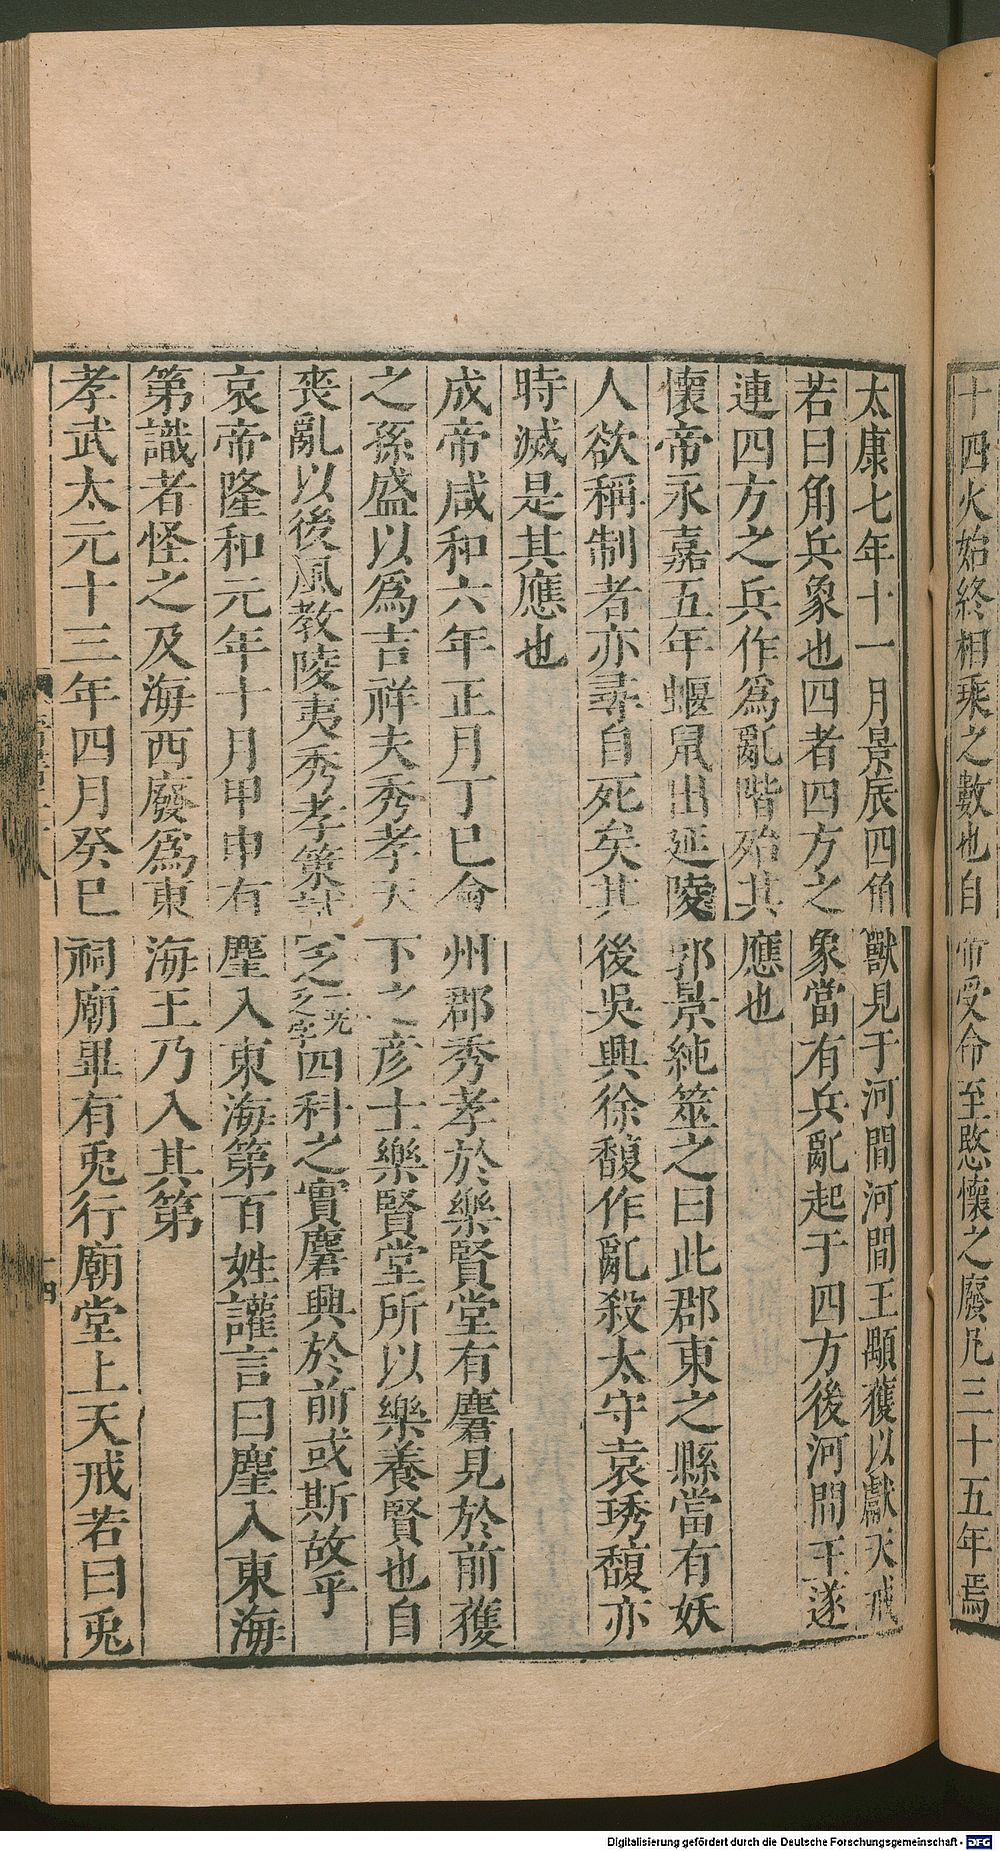 十四火始終相乘之數也自帝受命至愍懷之廢凡三十五年焉
太康七年十一月景辰四角獸見于河間河間王顒獲以獻天戒
若曰角兵象也四者四方之象當有兵亂起于四方後河間王遂
連四方之兵作爲亂階殆其應也
懷帝永嘉五年蝘鼠出延陵郭景純筮之曰此郡東之縣當有妖
人欲稱制者亦尋自死矣其後吳興徐馥作亂殺太守袁琇馥亦
時滅是其應也
成帝咸和六年正月丁巳會州郡秀孝於樂賢堂有麏見於前獲
之孫盛以爲吉祥夫秀孝天下之彦士樂賢堂所以樂養賢也自
喪亂以後風教陵夷秀孝策試乏四科之實麏興於前或斯故乎
哀帝隆和元年十月甲申有麈入東海第百姓讙言曰麈入東海
第識者怪之及海西廢爲東海王乃入其第
孝武太元十三年四月癸巳祠廟畢有兎行廟堂上天戒若曰兎
Digitalisierung gefördert durch die Deutsche Forschungsgemeinschaft - DFG